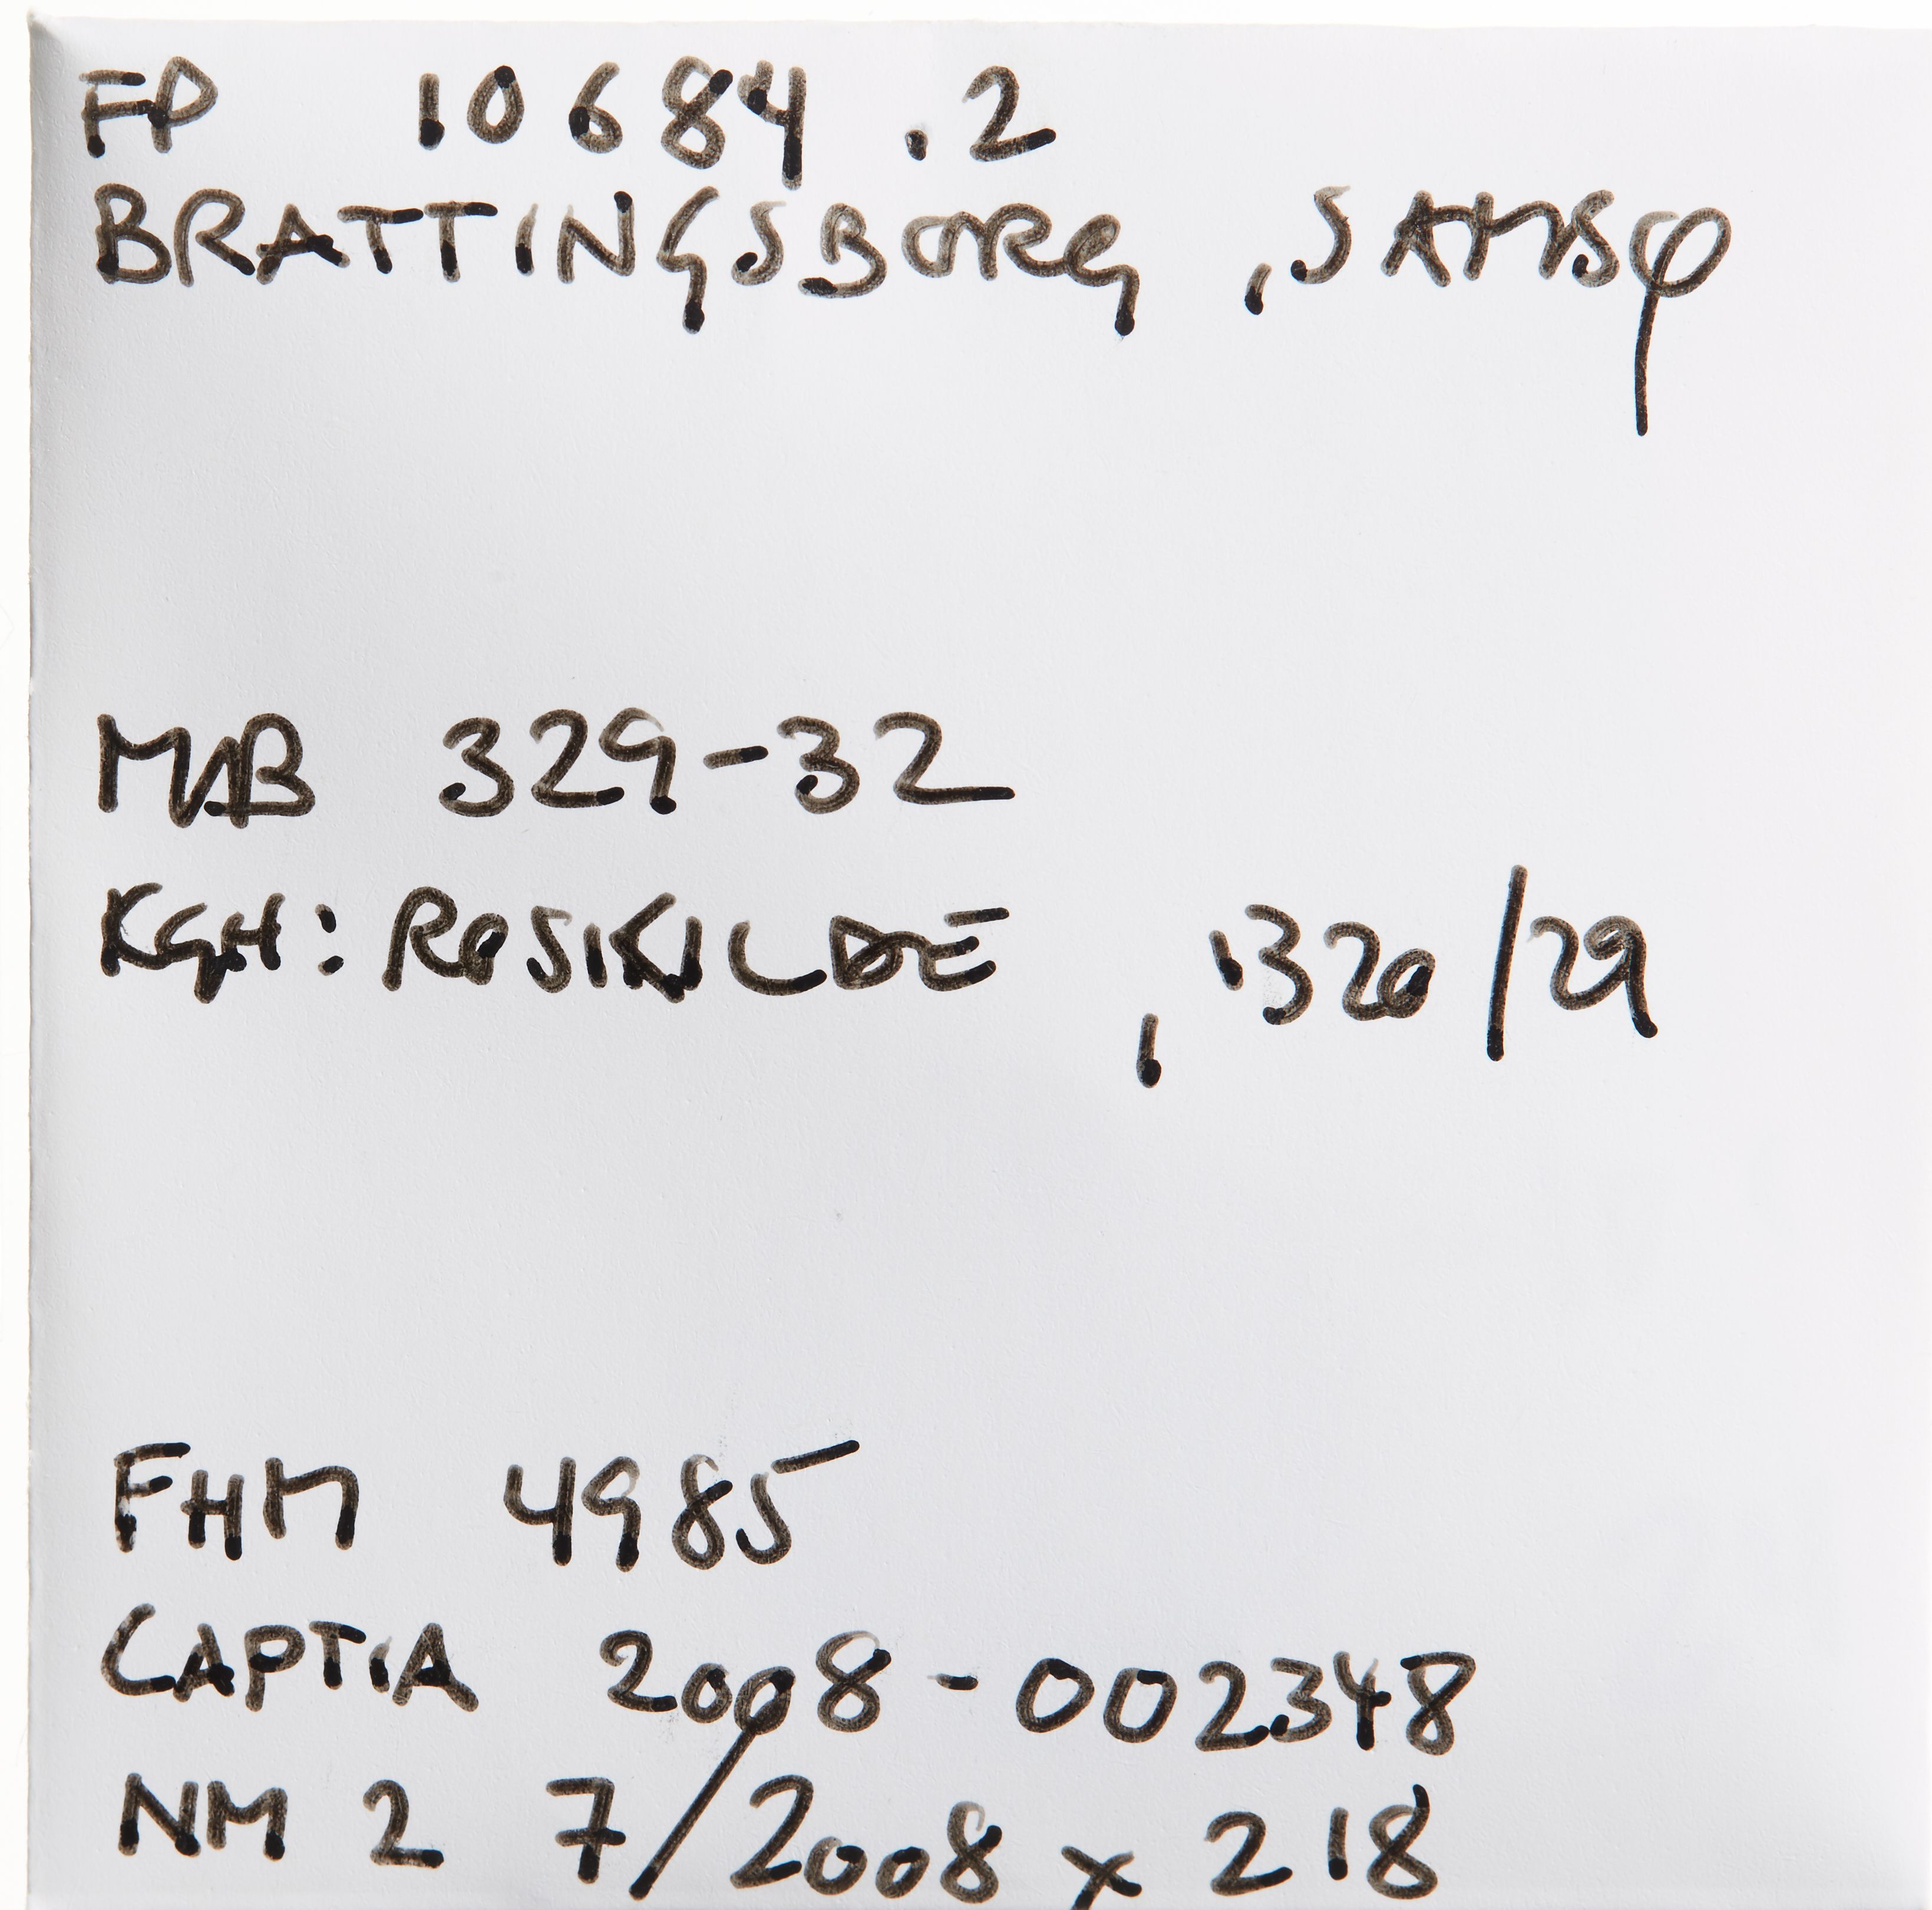 FP 10684.2
BRATTINGSBORG, SAMSØ
MB 329-32
KGH: ROSKILDE, 1320/29
FHM 4985
CAPTIA 2008-002348
NM 2 7/2008 x 218